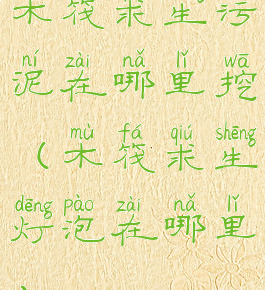 木筏求生污
ní zài nǎ lǐ wā
泥在哪里挖
mù fá qiú shēng
(木筏求生
dēng pào zài nǎ lǐ
灯泡在哪里
)